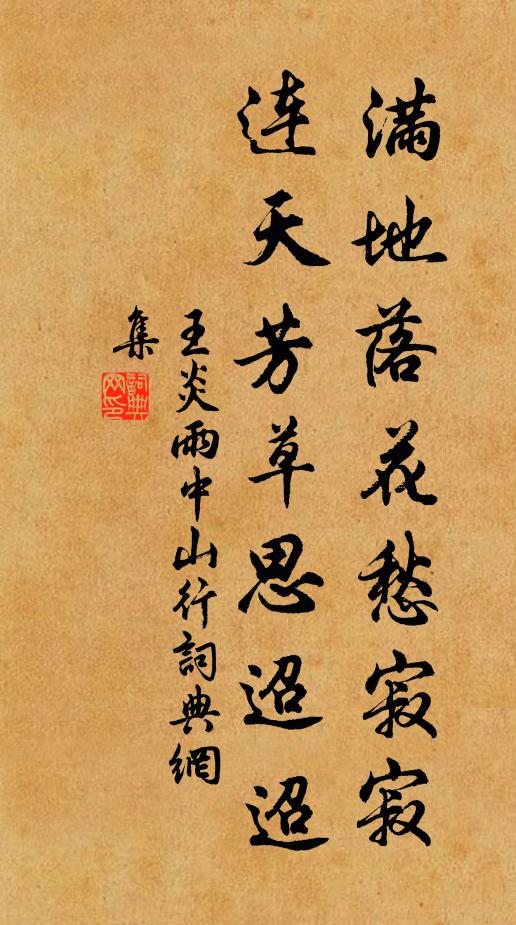 滿地落花愁寂寂
连天芳草思迢迢
王炎雨中山行詞典網
集
詞典網印